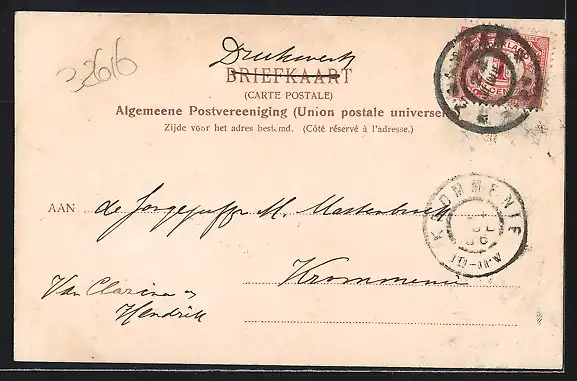 32616
Drukwerk
BRIEFKAART
(CARTE POSTALE)
Algemeene Postvereeniging (Union postale universel
Zijde voor het adres bestemd. (Côté réservé à l'adresse.)
AAN de Jongejuffr M. Mastenbroek
Krommenie
Van Clarina en
Hendrik
NEDERLAND
1
CENT
KROMMENIE